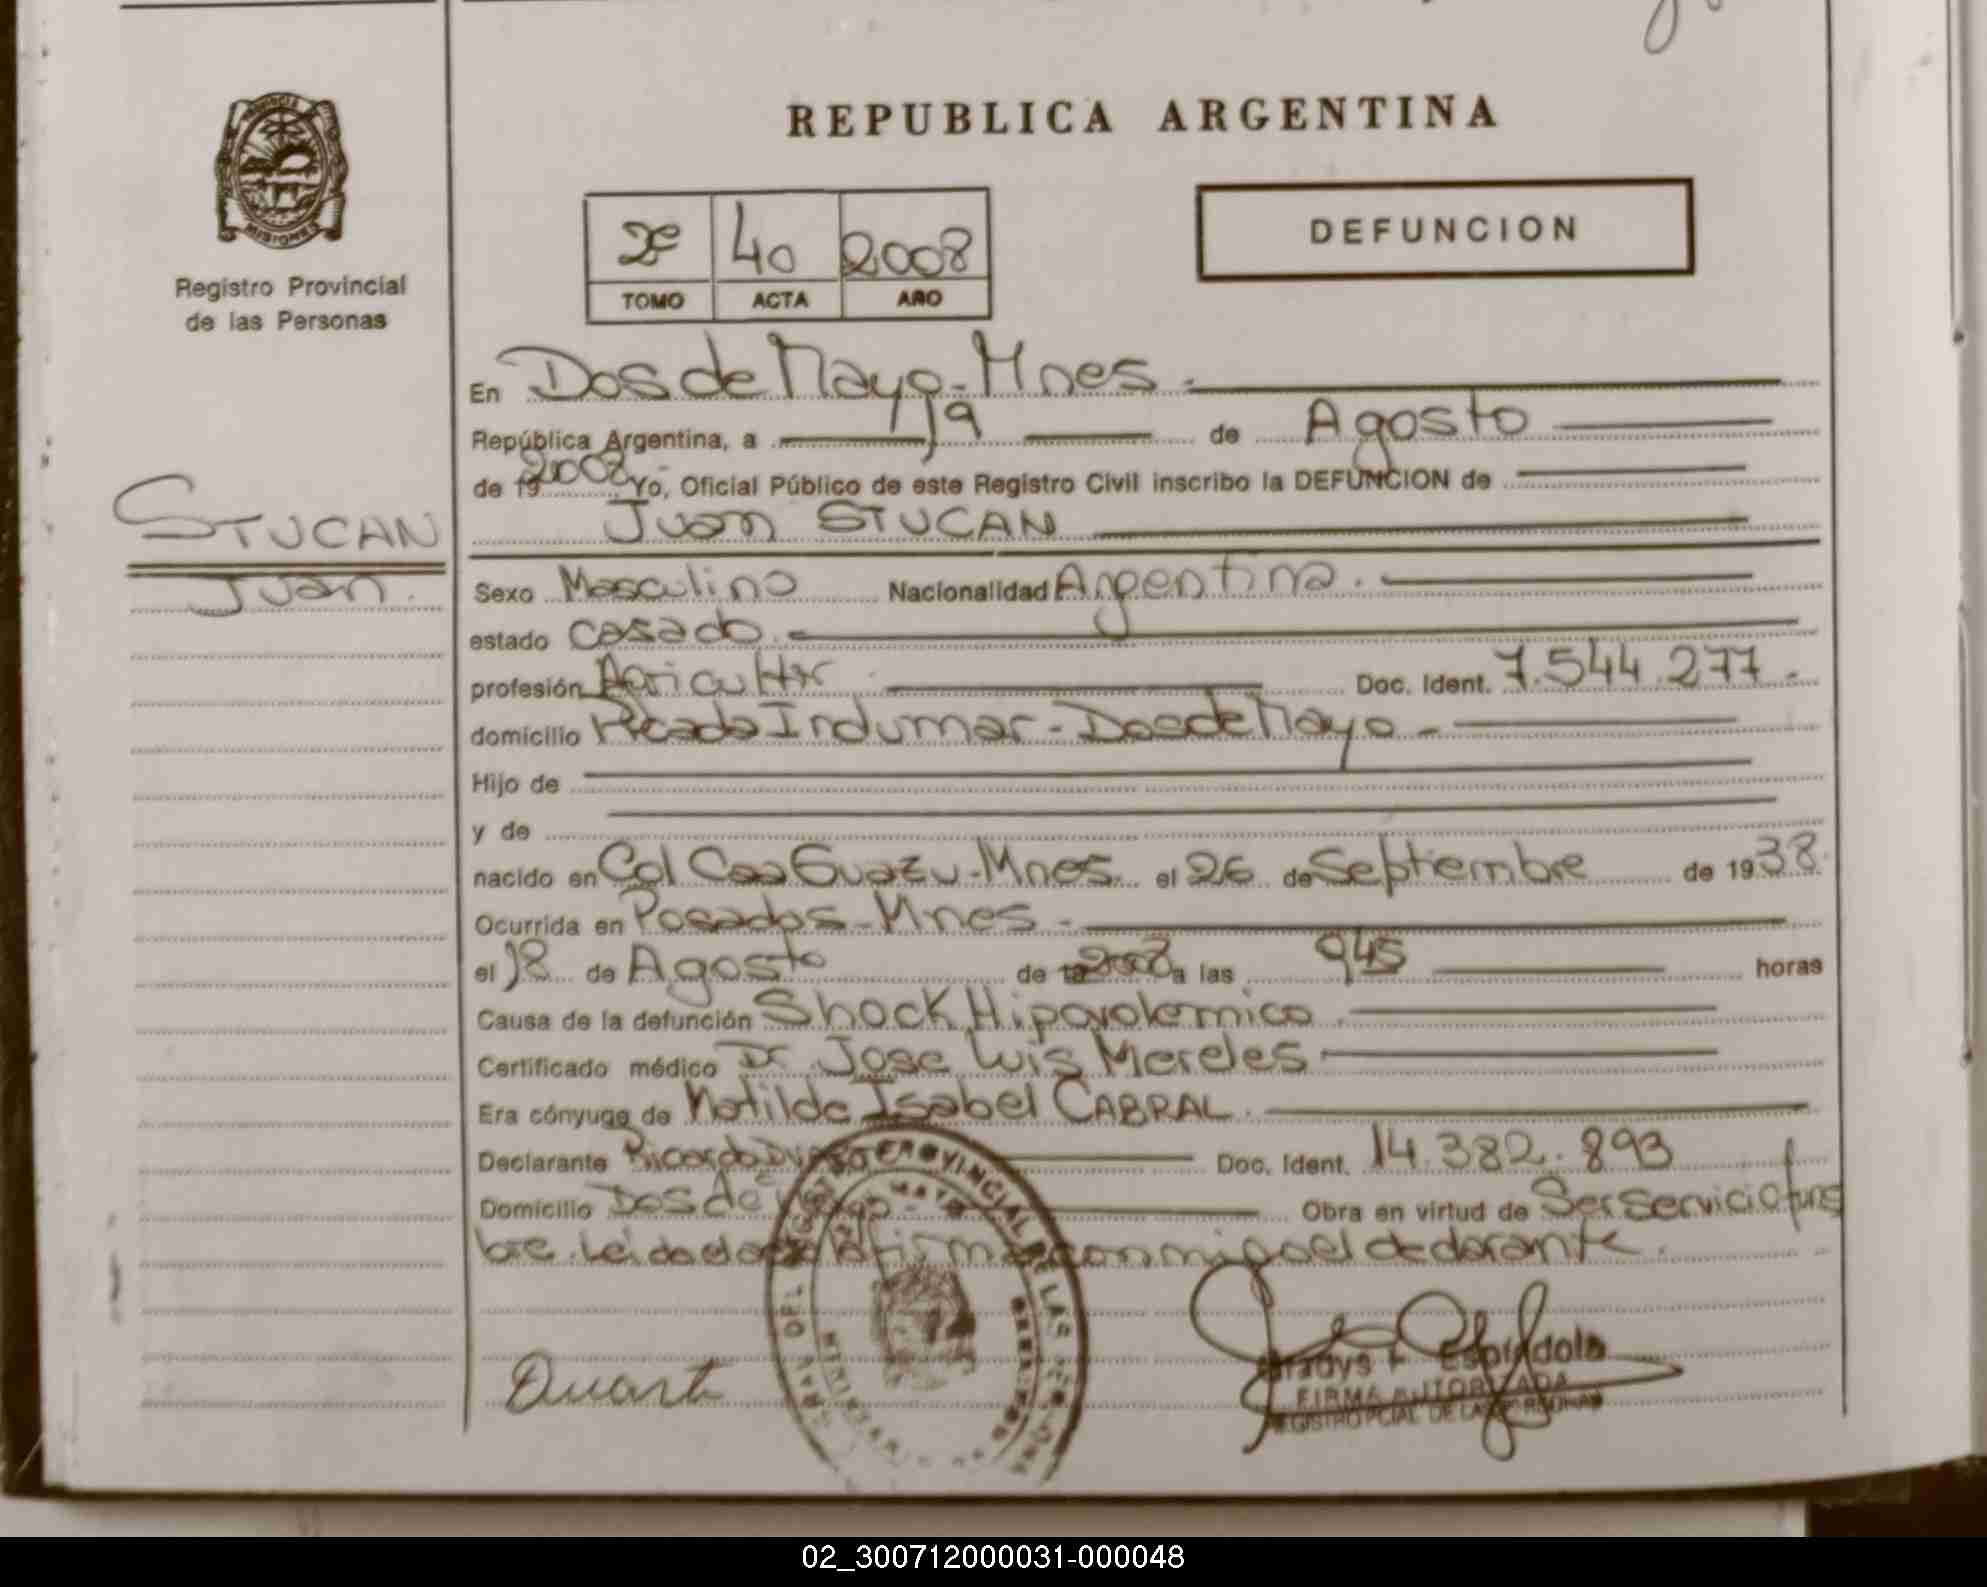 REPUBLICA ARGENTINA
PROVINCIA
MISIONES
Registro Provincial
de las Personas
2º 40 2008
TOMO ACTA AÑO
DEFUNCION
En Dos de Mayo - Mnes.
República Argentina, a 19 de Agosto
de 19 2008 Yo, Oficial Público de este Registro Civil inscribo la DEFUNCION de
Juan STUCAN
STUCAN
Juan.
Sexo Masculino Nacionalidad Argentina.
estado casado.
profesión Agricultor Doc. Ident. 7.544.277.-
domicilio Picada Indumar - Dos de Mayo -
Hijo de
y de
nacido en Col Caa Guazu - Mnes. el 26 de Septiembre de 1938.
Ocurrida en Posadas - Mnes -
el 18 de Agosto de 2008 a las 945 horas
Causa de la defunción Shock Hipovolemico
Certificado médico Dr. Jose Luis Mereles
Era cónyuge de Matilde Isabel CABRAL.
Declarante Ricardo Doc. Ident. 14.382.893
Domicilio Dos de Mayo Obra en virtud de Ser servicio fune
bre. Leida el acta la firma conmigo el declarante.
Duarte
Espíndola
FIRMA AUTORIZADA
REGISTRO PCIAL. DE LAS PERSONAS
02_300712000031-000048